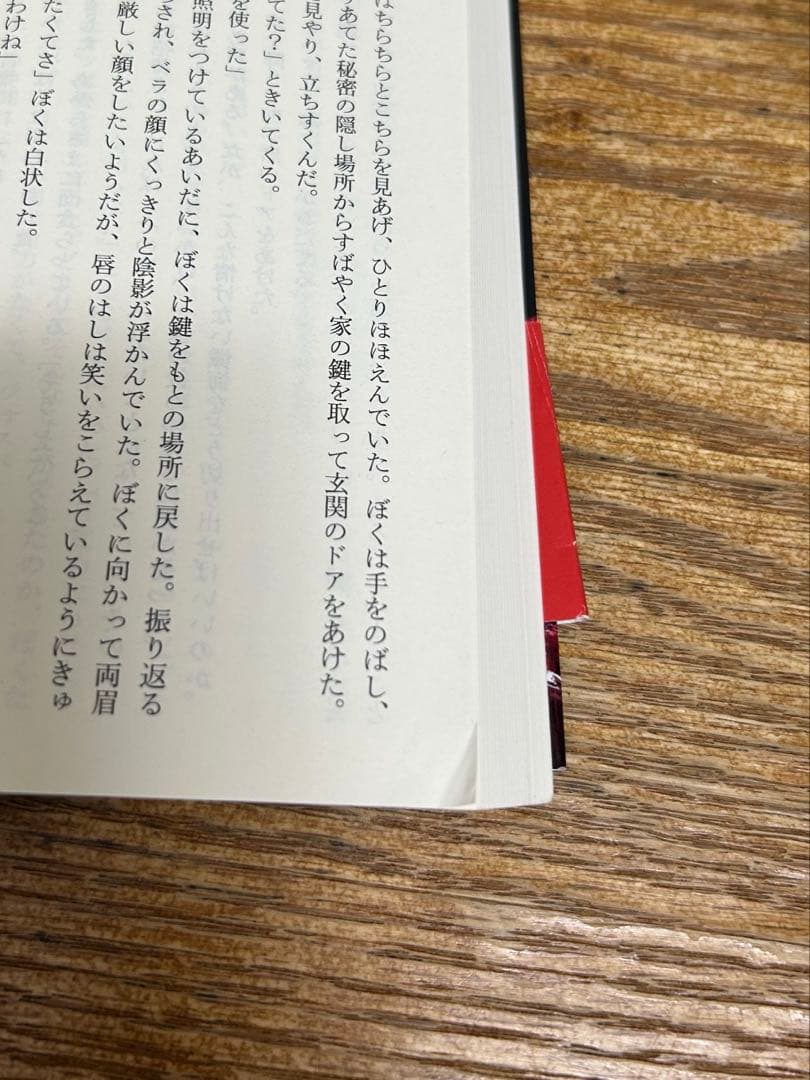 はちらちらとこちらを見あげ、ひとりほほえんでいた。ぼくは手をのばし、
りあてた秘密の隠し場所からすばやく家の鍵を取って玄関のドアをあけた。
見やり、立ちすくんだ。
てた?」ときいてくる。
を使った」
照明をつけているあいだに、ぼくは鍵をもとの場所に戻した。振り返る
らされ、ベラの顔にくっきりと陰影が浮かんでいた。ぼくに向かって両眉
厳しい顔をしたいようだが、唇のはしは笑いをこらえているようにきゅ
たくてさ」ぼくは白状した。
わけね」